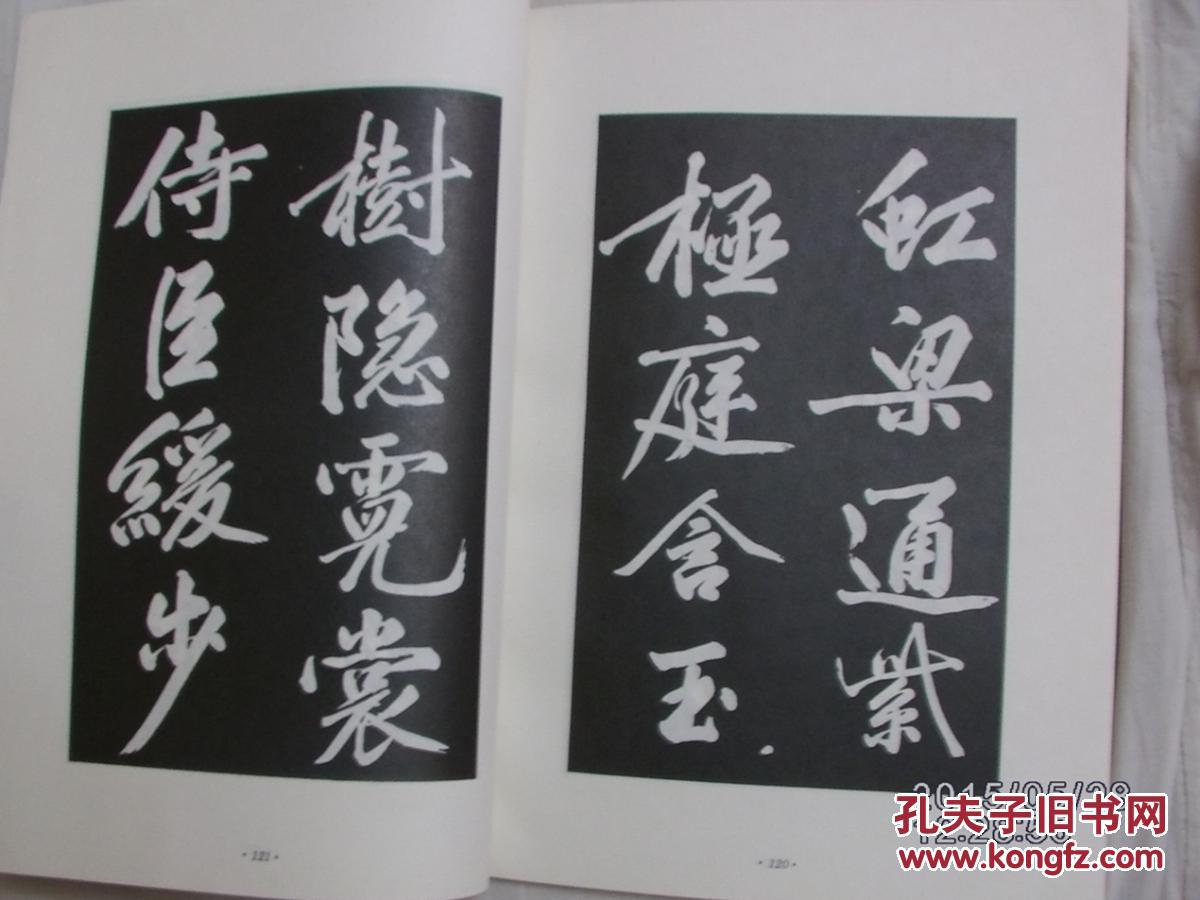 虹梁通紫
極庭含玉
·120·
樹隐霓裳
侍臣緩步
·121·
2015/05/28
孔夫子旧书网
www.kongfz.com